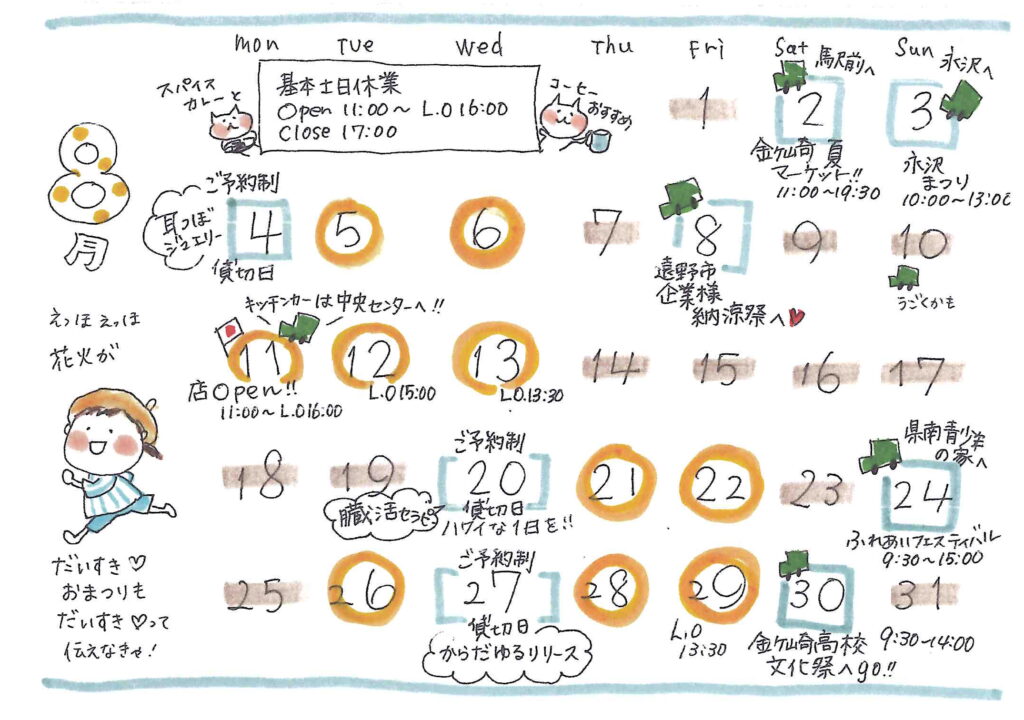 Mon Tue Wed Thu Fri Sat Sun
スパイス
カレーと
基本土日休業
Open 11:00〜 L.O 16:00
Close 17:00
コーヒー
おすすめ
8
月
1
駅前へ
2
金ケ崎 夏
マーケット!!
11:00〜19:30
永沢へ
3
永沢
まつり
10:00〜13:00
耳つぼ
ジュエリー
ご予約制
4
貸切日
5
6
7
8
遠野市
企業様
納涼祭へ♥
9
10
うごくかも
えっほ えっほ
花火が
キッチンカーは中央センターへ!!
11
店Open!!
11:00〜L.O16:00
12
L.O 15:00
13
L.O.13:30
14
15
16
17
18
19
臓活セラピー
ご予約制
20
貸切日
ハワイな1日を!!
21
22
23
県南青少年
の家へ
24
ふれあいフェスティバル
9:30〜15:00
だいすき♡
おまつりも
だいすき♡って
伝えなきゃ!
25
26
ご予約制
27
貸切日
からだゆるリリース
28
29
L.O
13:30
30
金ケ崎高校
文化祭へgo!!
31
9:30〜14:00